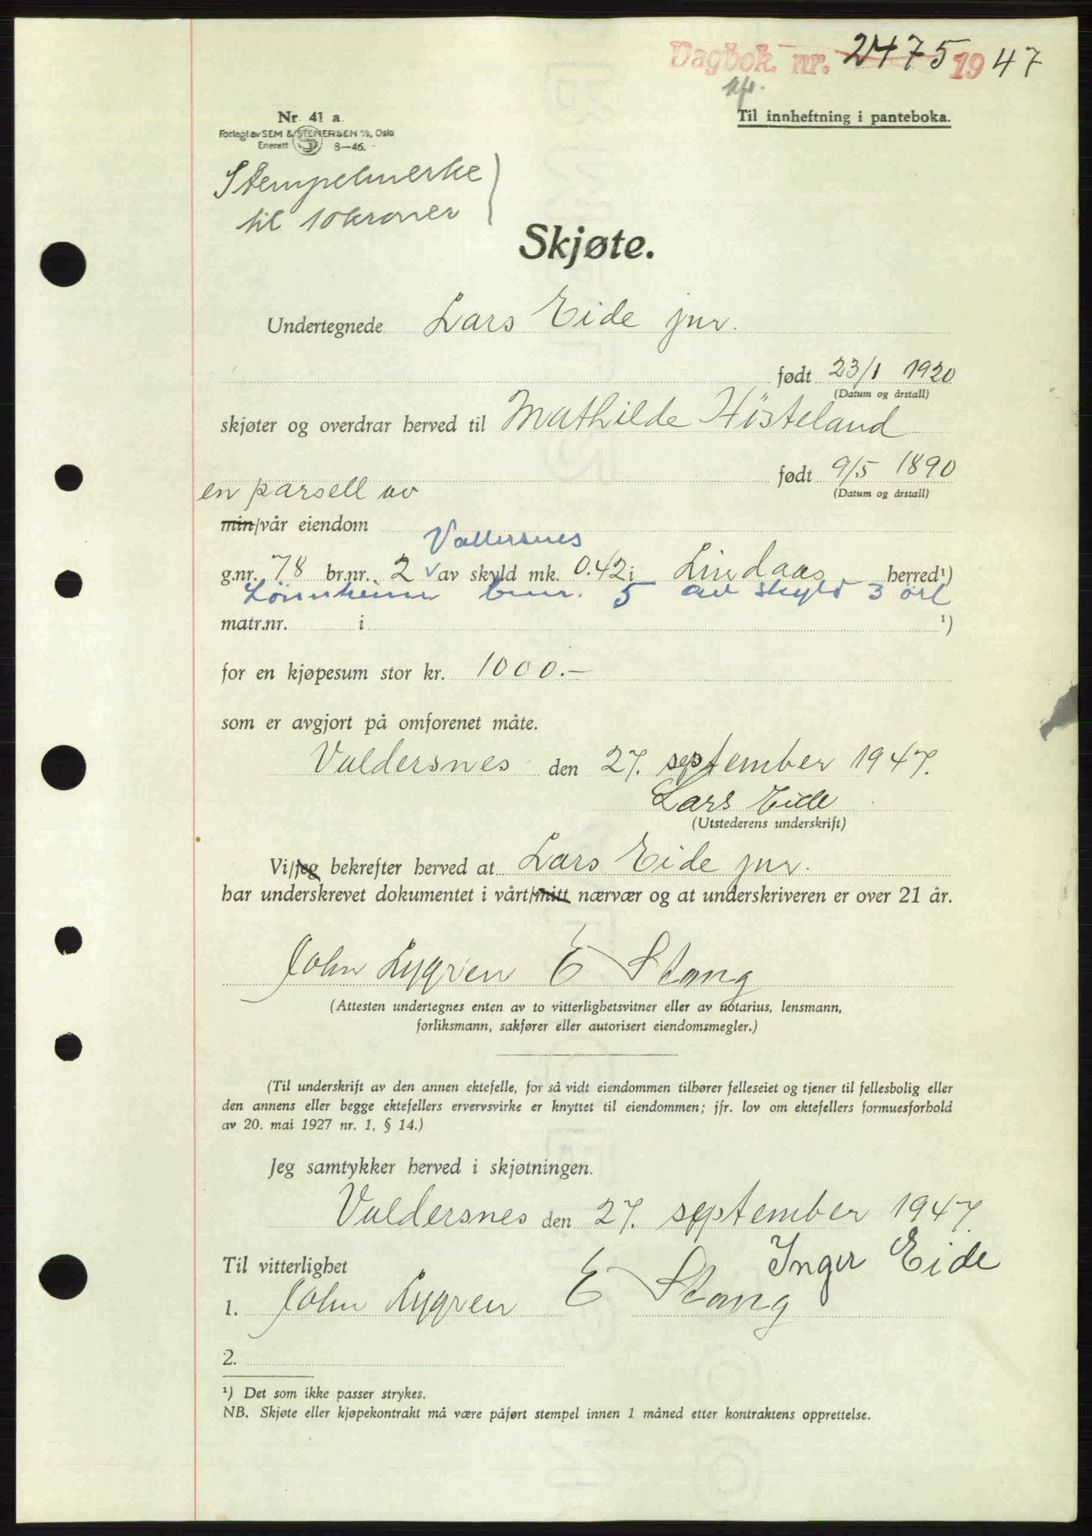 Dagbok nr. 2475 1947
Til innheftning i panteboka.
Nr. 41 a
Forlagt av SEM & STENERSEN A/S, Oslo
Enerett 8—46.
Stempelmerke
til 10 kroner
Skjøte.
Undertegnede Lars Eide jnr.
født 23/1 1920
(Datum og årstall)
skjøter og overdrar herved til Mathilde Høsteland
født 9/5 1890
(Datum og årstall)
en parsell av
min/vår eiendom
Vallersnes
g.nr. 78 br.nr. 2 av skyld mk. 0.42 i Lindaas herred¹)
Lønnheim bnr. 5 av skyld 3 øre
matr.nr. i ¹)
for en kjøpesum stor kr. 1000.-
som er avgjort på omforenet måte.
Valdersnes den 27. september 1947.
Lars Eide
(Utstederens underskrift)
Vi/jeg bekrefter herved at Lars Eide jnr.
har underskrevet dokumentet i vårt/mitt nærvær og at underskriveren er over 21 år.
John Lygren E Stang
(Attesten undertegnes enten av to vitterlighetsvitner eller av notarius, lensmann,
forliksmann, sakfører eller autorisert eiendomsmegler.)
(Til underskrift av den annen ektefelle, for så vidt eiendommen tilhører felleseiet og tjener til fellesbolig eller
den annens eller begge ektefellers ervervsvirke er knyttet til eiendommen; jfr. lov om ektefellers formuesforhold
av 20. mai 1927 nr. 1, § 14.)
Jeg samtykker herved i skjøtningen.
Valdersnes den 27. september 1947.
Inger Eide
Til vitterlighet
1. John Lygren E Stang
2.
¹) Det som ikke passer strykes.
NB. Skjøte eller kjøpekontrakt må være påført stempel innen 1 måned etter kontraktens opprettelse.